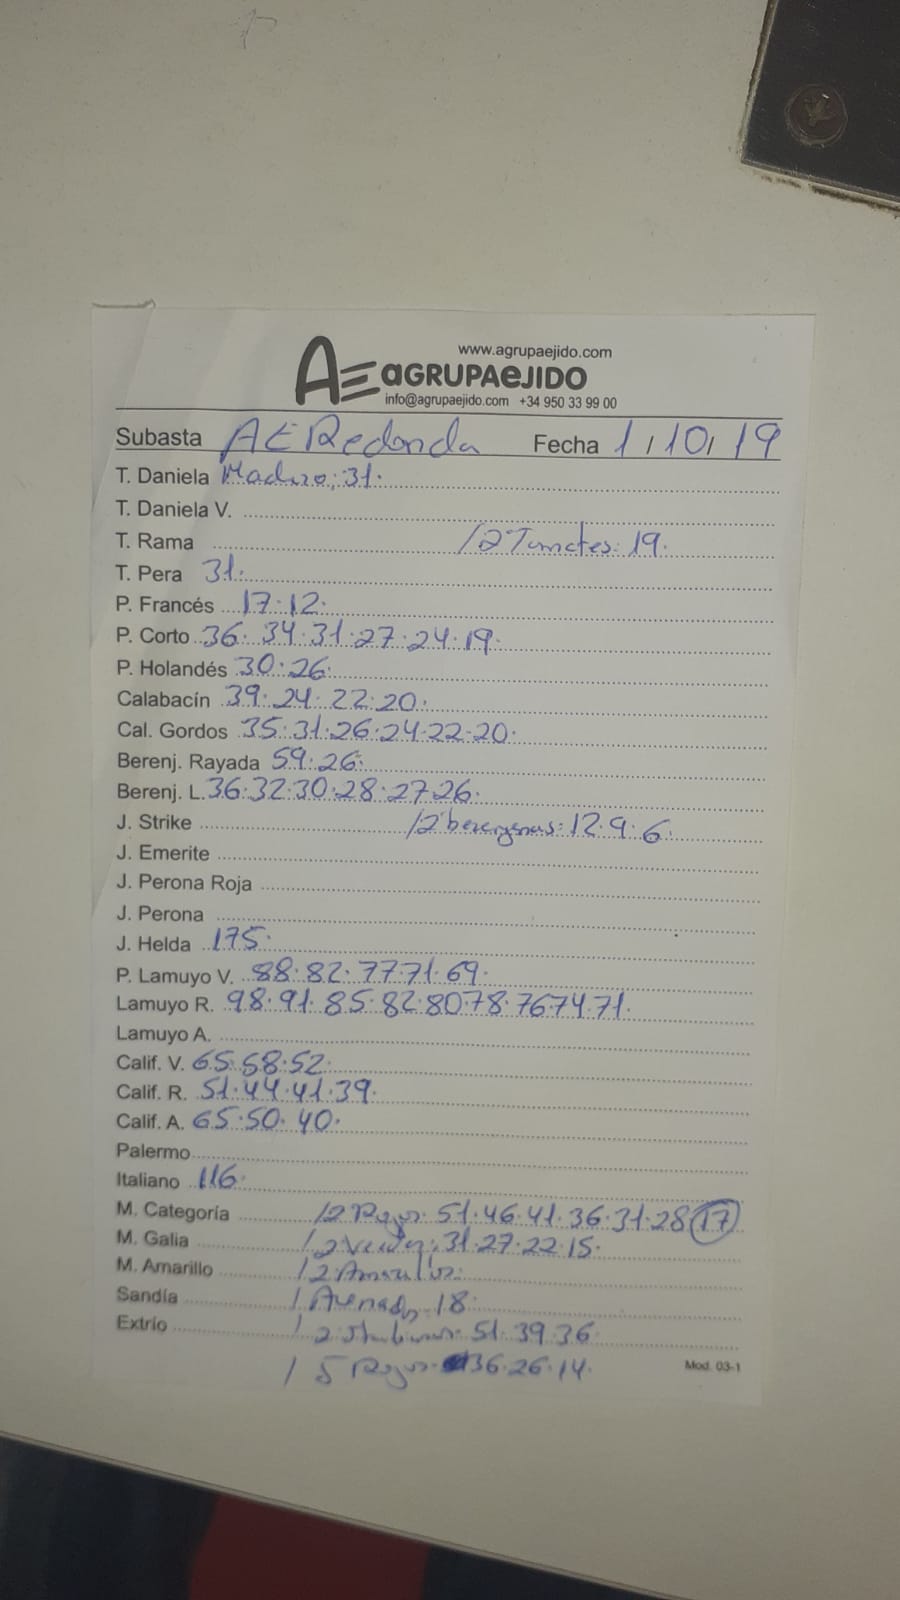 www.agrupaejido.com
AE aGRUPAeJIDO
info@agrupaejido.com +34 950 33 99 00
Subasta AE Redonda Fecha 1/10/19
T. Daniela Maduro; 31.
T. Daniela V.
T. Rama / 2 Tomates: 19.
T. Pera 31.
P. Francés 17.12.
P. Corto 36. 34.31.27.24.19.
P. Holandés 30.26.
Calabacín 39.24.22.20.
Cal. Gordos 35.31.26.24.22.20.
Berenj. Rayada 59.26.
Berenj. L. 36.32.30.28.27.26.
J. Strike / 2 berengenas: 12.9.6.
J. Emerite
J. Perona Roja
J. Perona
J. Helda 175.
P. Lamuyo V. 88.82.77.71.69.
Lamuyo R. 98.91.85.82.80.78.76.74.71.
Lamuyo A.
Calif. V. 65.58.52.
Calif. R. 51.44.41.39.
Calif. A. 65.50.40.
Palermo
Italiano 116.
M. Categoría / 2 Rojos. 51.46.41.36.31.28 17
M. Galia / 2 Verdes; 31.27.22.15.
M. Amarillo / 2 Amarillos:
Sandía / 18.
Extrío / 2 Italianos. 51.39.36
/ 5 Rojos. 36.26.14.
Mod. 03-1